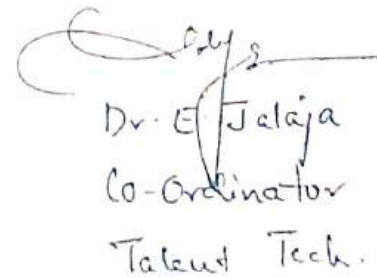 Dr. E Jalaja
Co-Ordinator
Talent Tech.